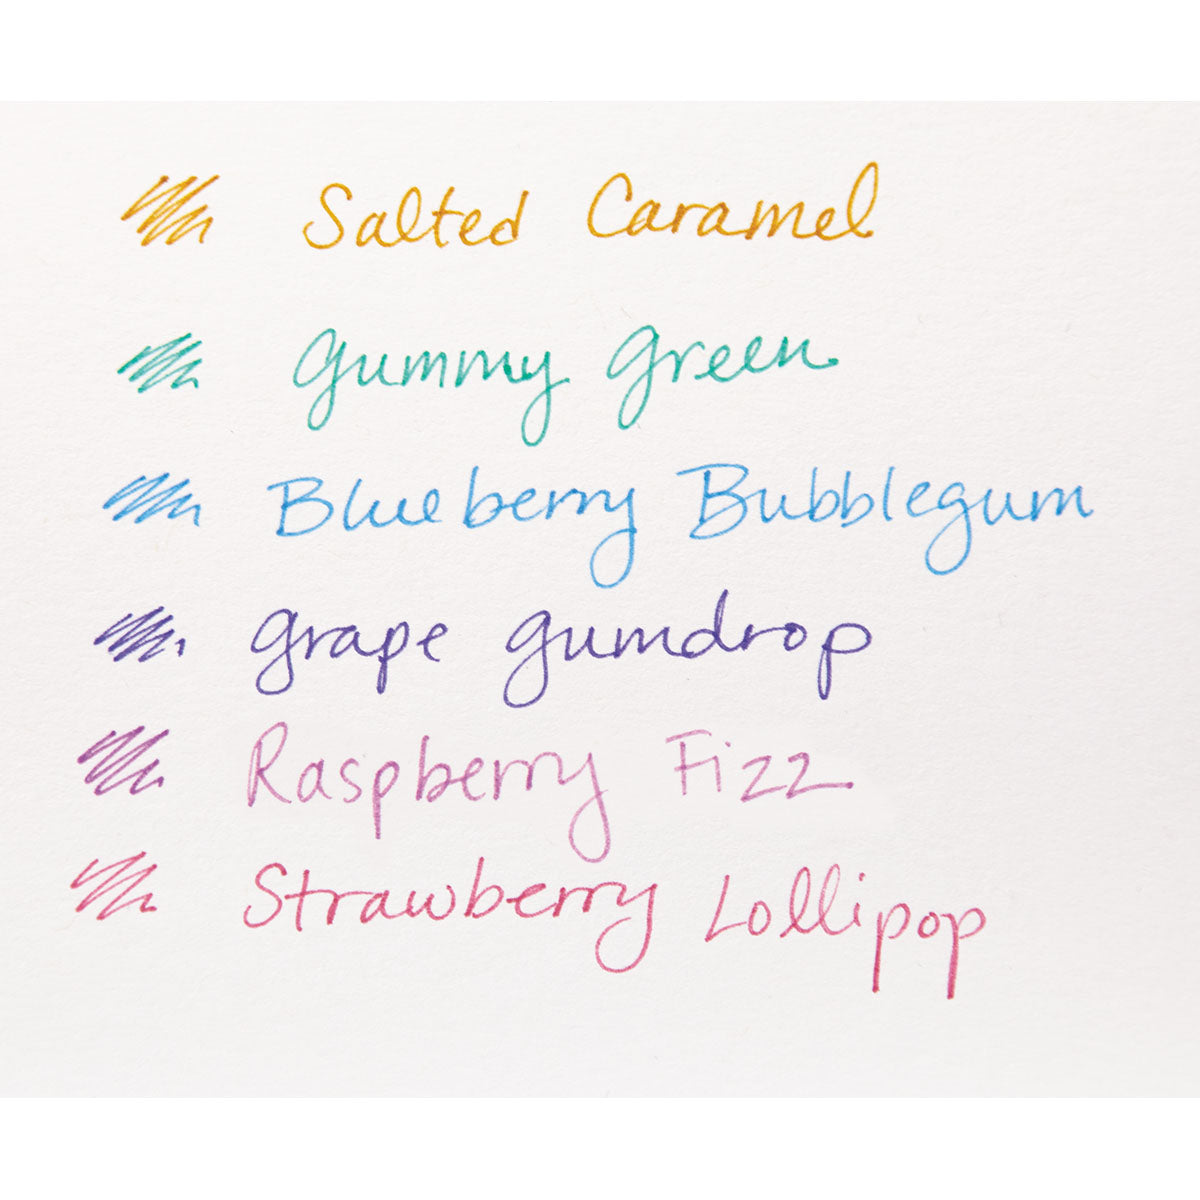 Salted Caramel
Gummy Green
Blueberry Bubblegum
Grape Gumdrop
Raspberry Fizz
Strawberry Lollipop